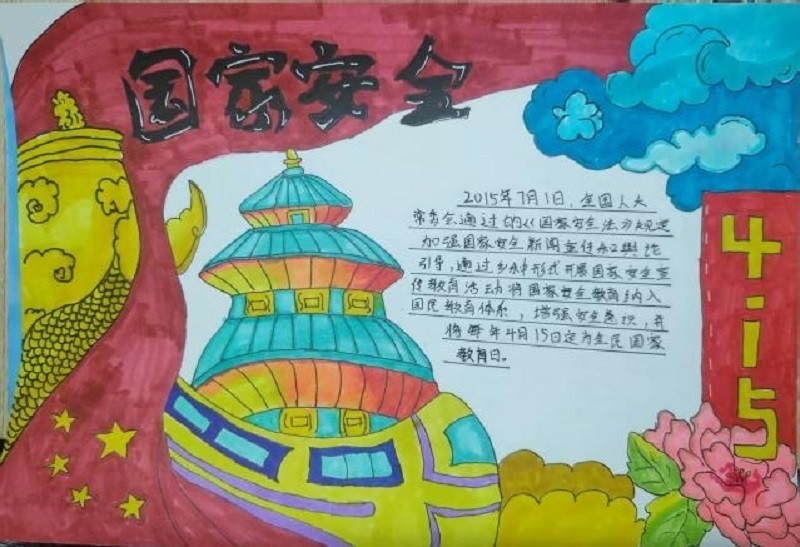 国家安全
2015年7月1日，全国人大
常委会通过的《国家安全法》规定
加强国家安全新闻宣传和舆论
引导，通过多种形式开展国家安全宣
传教育活动将国家安全教育纳入
国民教育体系，增强安全意识，并
将每年4月15日定为全民国家
教育日。
4·15